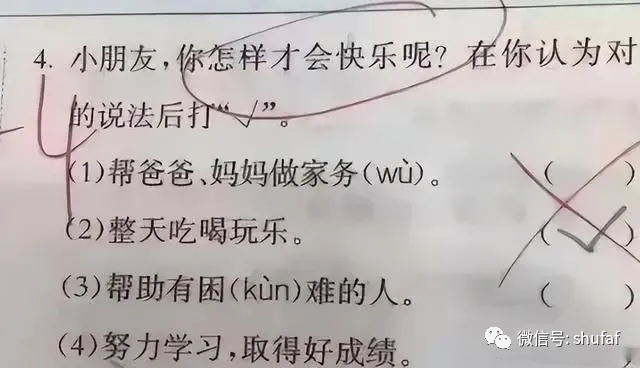 4. 小朋友,你怎样才会快乐呢? 在你认为对
的说法后打“√”。
(1)帮爸爸、妈妈做家务(wù)。 ( )
(2)整天吃喝玩乐。 (√)
(3)帮助有困(kùn)难的人。 ( )
(4)努力学习,取得好成绩。
微信号: shufaf